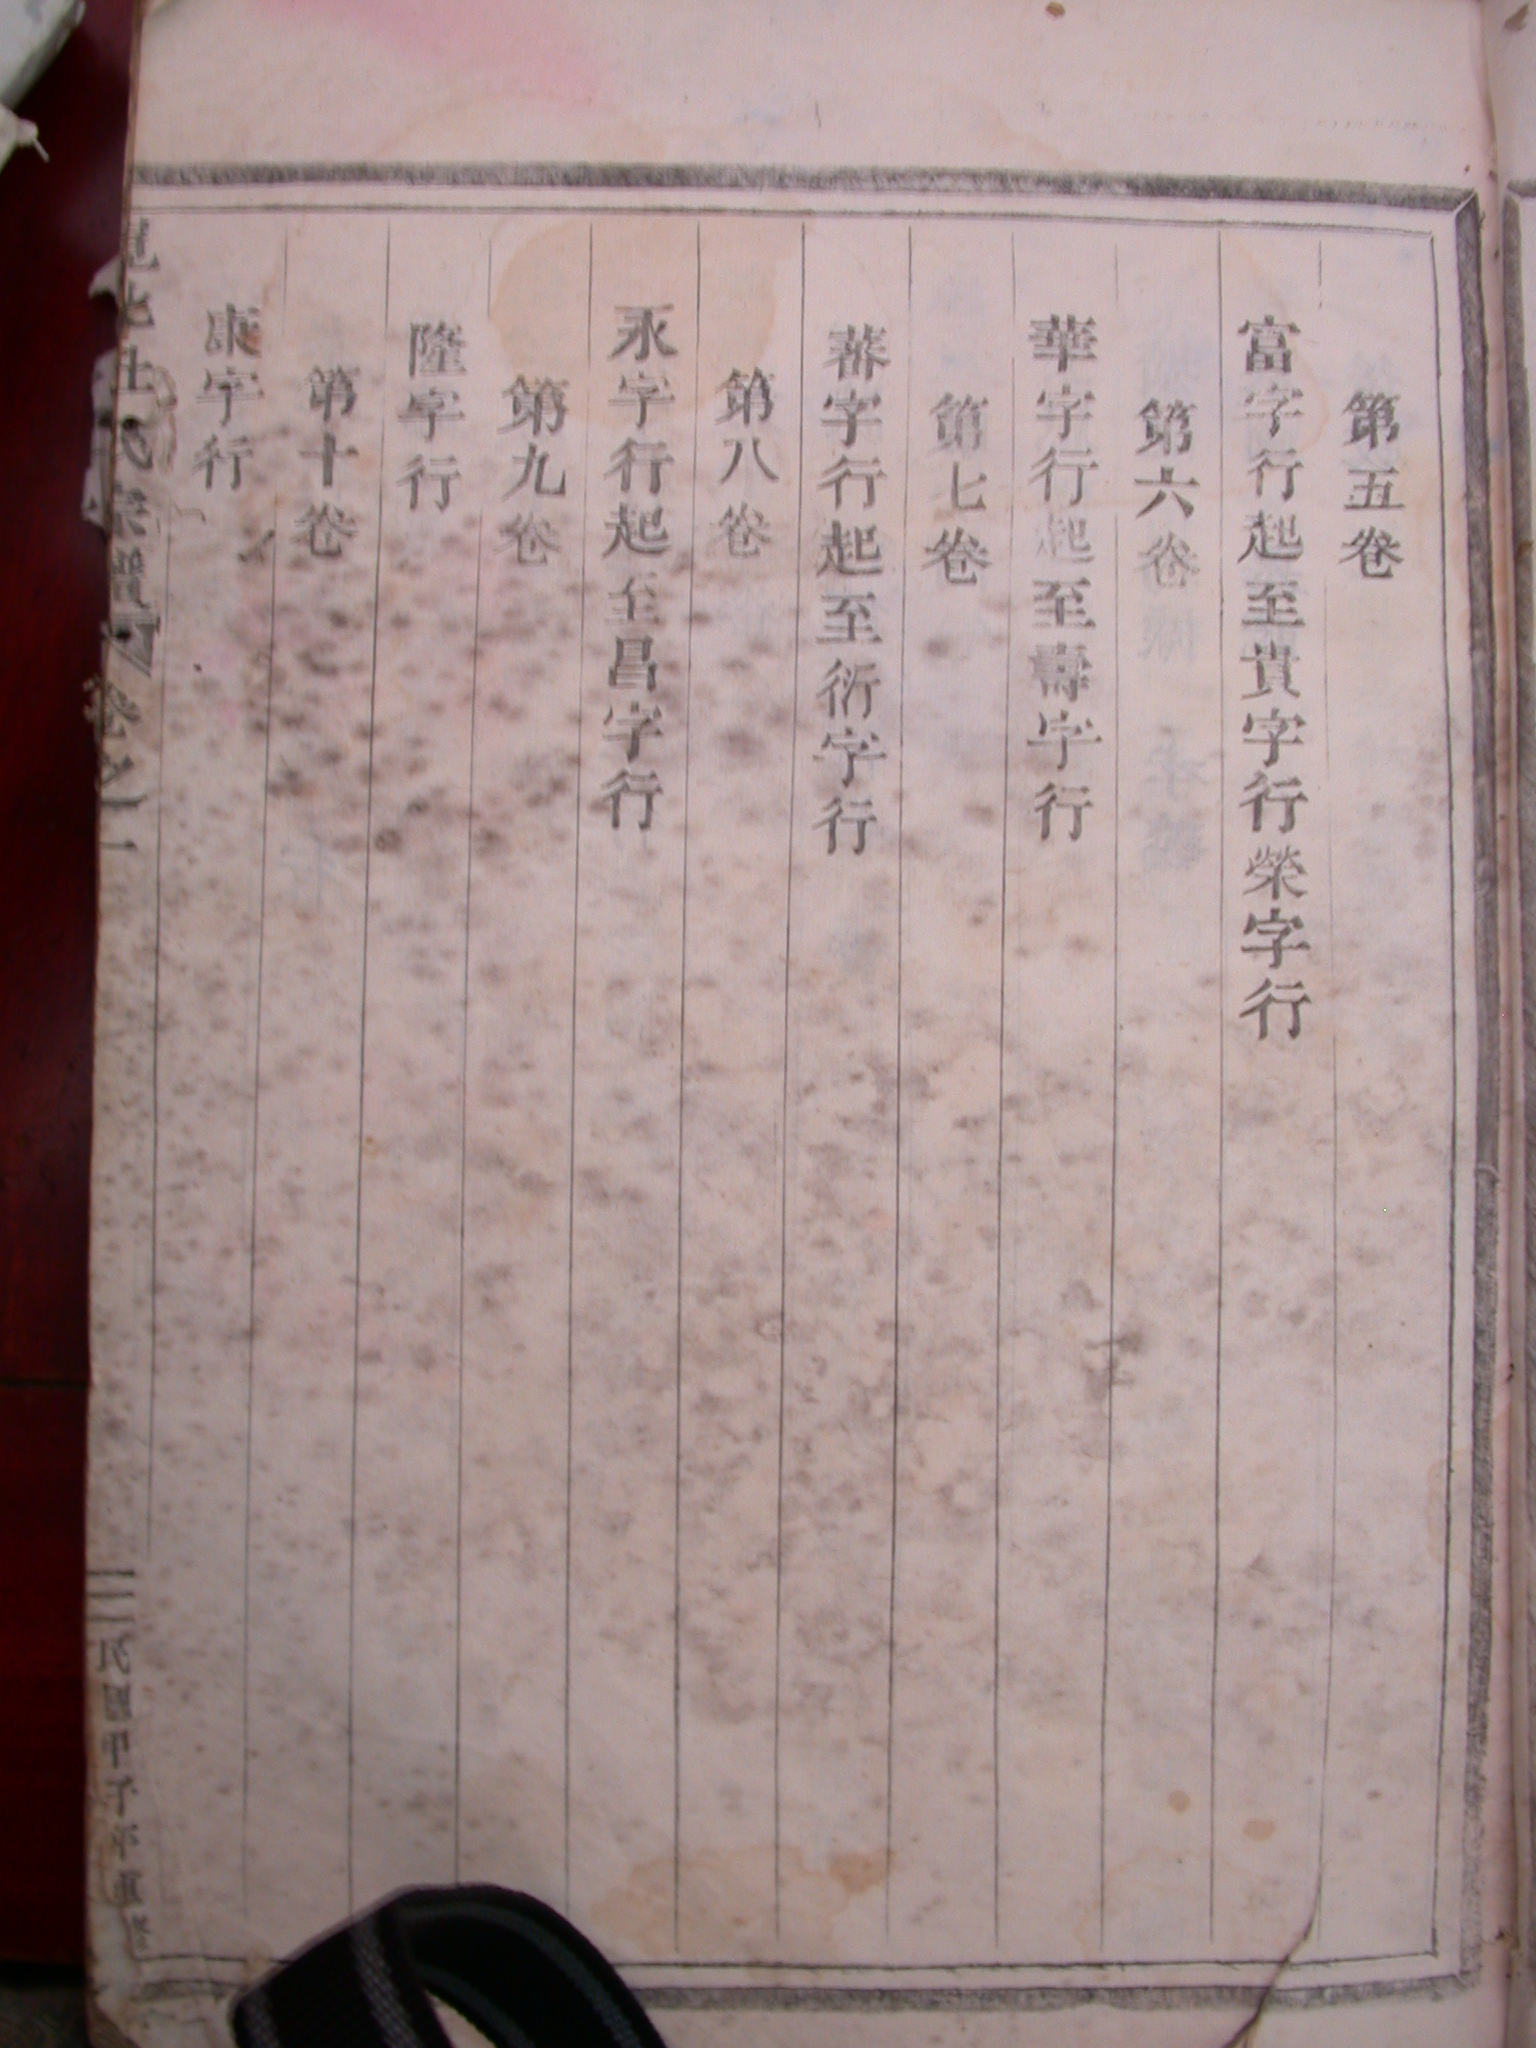 第五卷
富字行起至貴字行榮字行
第六卷
華字行起至壽字行
第七卷
蕃字行起至衍字行
第八卷
永字行起至昌字行
第九卷
隆字行
第十卷
康字行
氏宗譜 卷之一 二 民國甲子年重修